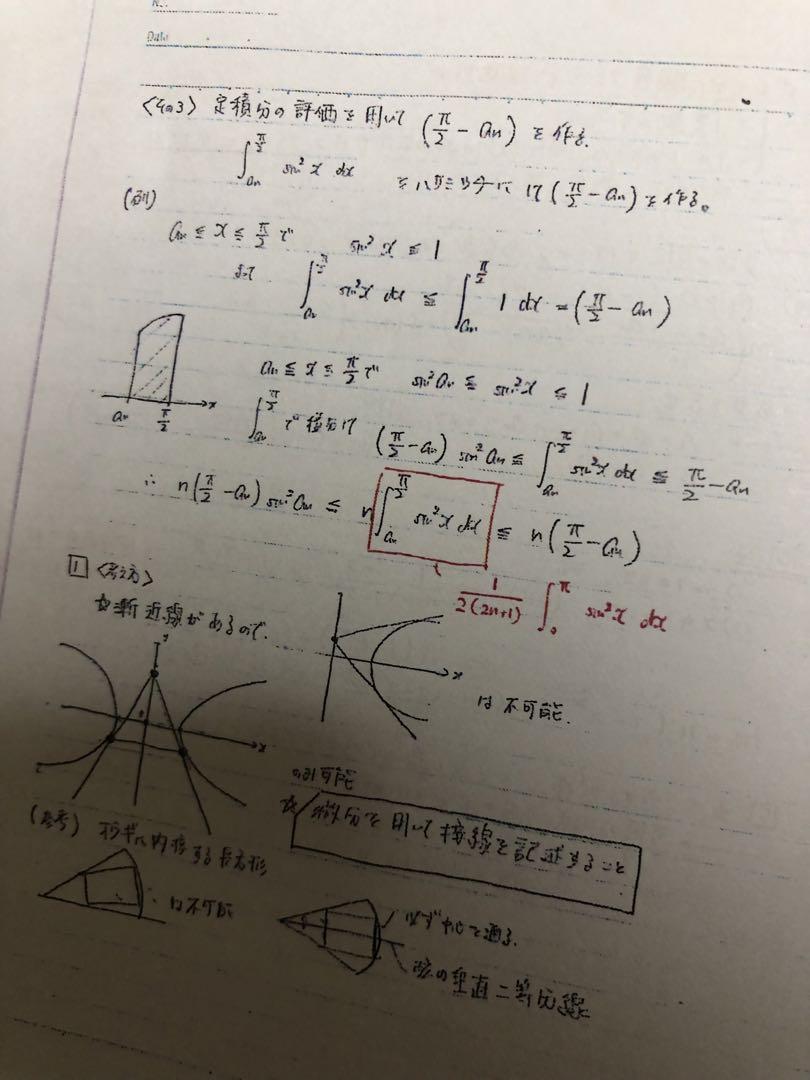 No.
Date
〈その3〉 定積分の評価を用いて (π/2 − aₙ) を作る.
∫_{aₙ}^{π/2} sin²x dx をハサミウチにして (π/2 − aₙ) を作る。
(例)
aₙ ≦ x ≦ π/2 で sin²x ≦ 1
よって ∫_{aₙ}^{π/2} sin²x dx ≦ ∫_{aₙ}^{π/2} 1 dx = (π/2 − aₙ)
aₙ ≦ x ≦ π/2 で sin²aₙ ≦ sin²x ≦ 1
x
aₙ π/2
∫_{aₙ}^{π/2} で積分して (π/2 − aₙ) sin²aₙ ≦ ∫_{aₙ}^{π/2} sin²x dx ≦ π/2 − aₙ
∴ n(π/2 − aₙ) sin²aₙ ≦ n∫_{aₙ}^{π/2} sin²x dx ≦ n(π/2 − aₙ)
1/2(2n+1) ∫_0^π sin²x dx
1 〈考え方〉
☆漸近線があるので、
y
x
x
は不可能.
のみ可能
☆ 微分を用いて接線を記述すること
(参考) 内接する長方形
は不可能
必ず中心を通る.
弦の垂直二等分線